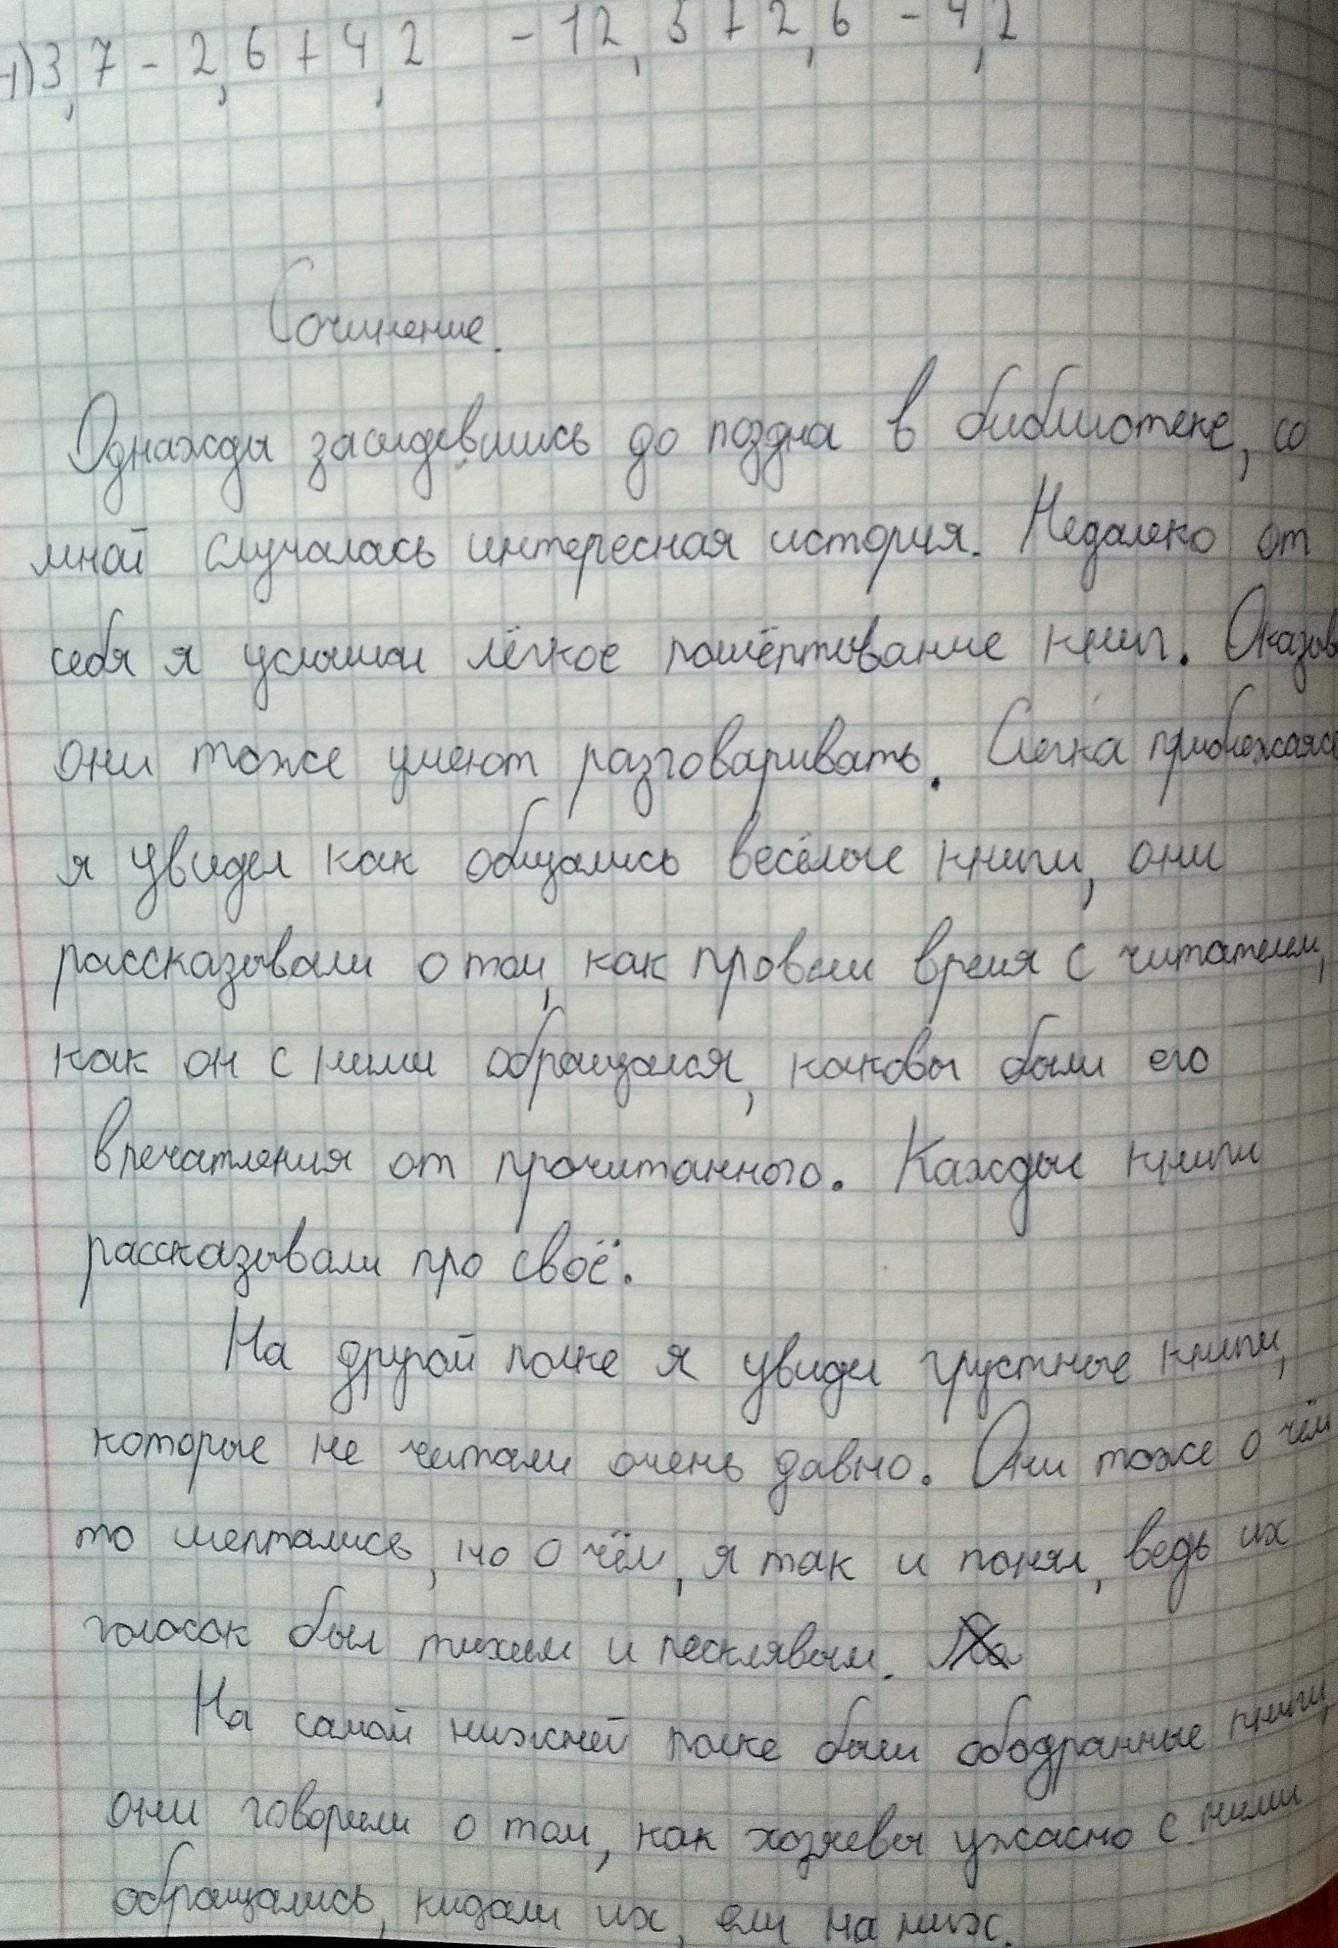 1) 3,7 - 2,6 + 4,2 - 12,5 + 2,6 - 4,2
Сочинение.
Однажды засидевшись до поздна в библиотеке, со
мной случалась интересная история. Недалеко от
себя я услышал лёгкое пошёптование книг. Оказыв
они тоже умеют разговаривать. Слегка приближаясь
я увидел как общались весёлые книги, они
рассказывали о том, как провели время с читателем,
как он с ними обращался, каковы были его
впечатления от прочитанного. Каждые книги
рассказывали про своё.
На другой полке я увидел грустные книги,
которые не читали очень давно. Они тоже о чём
то шептались, но о чём, я так и понял, ведь их
голосок был тихим и песклявым.
На самой нижней полке были ободранные книги,
они говорили о том, как хозяевы ужасно с ними
обращались, кидали их, ели на них.